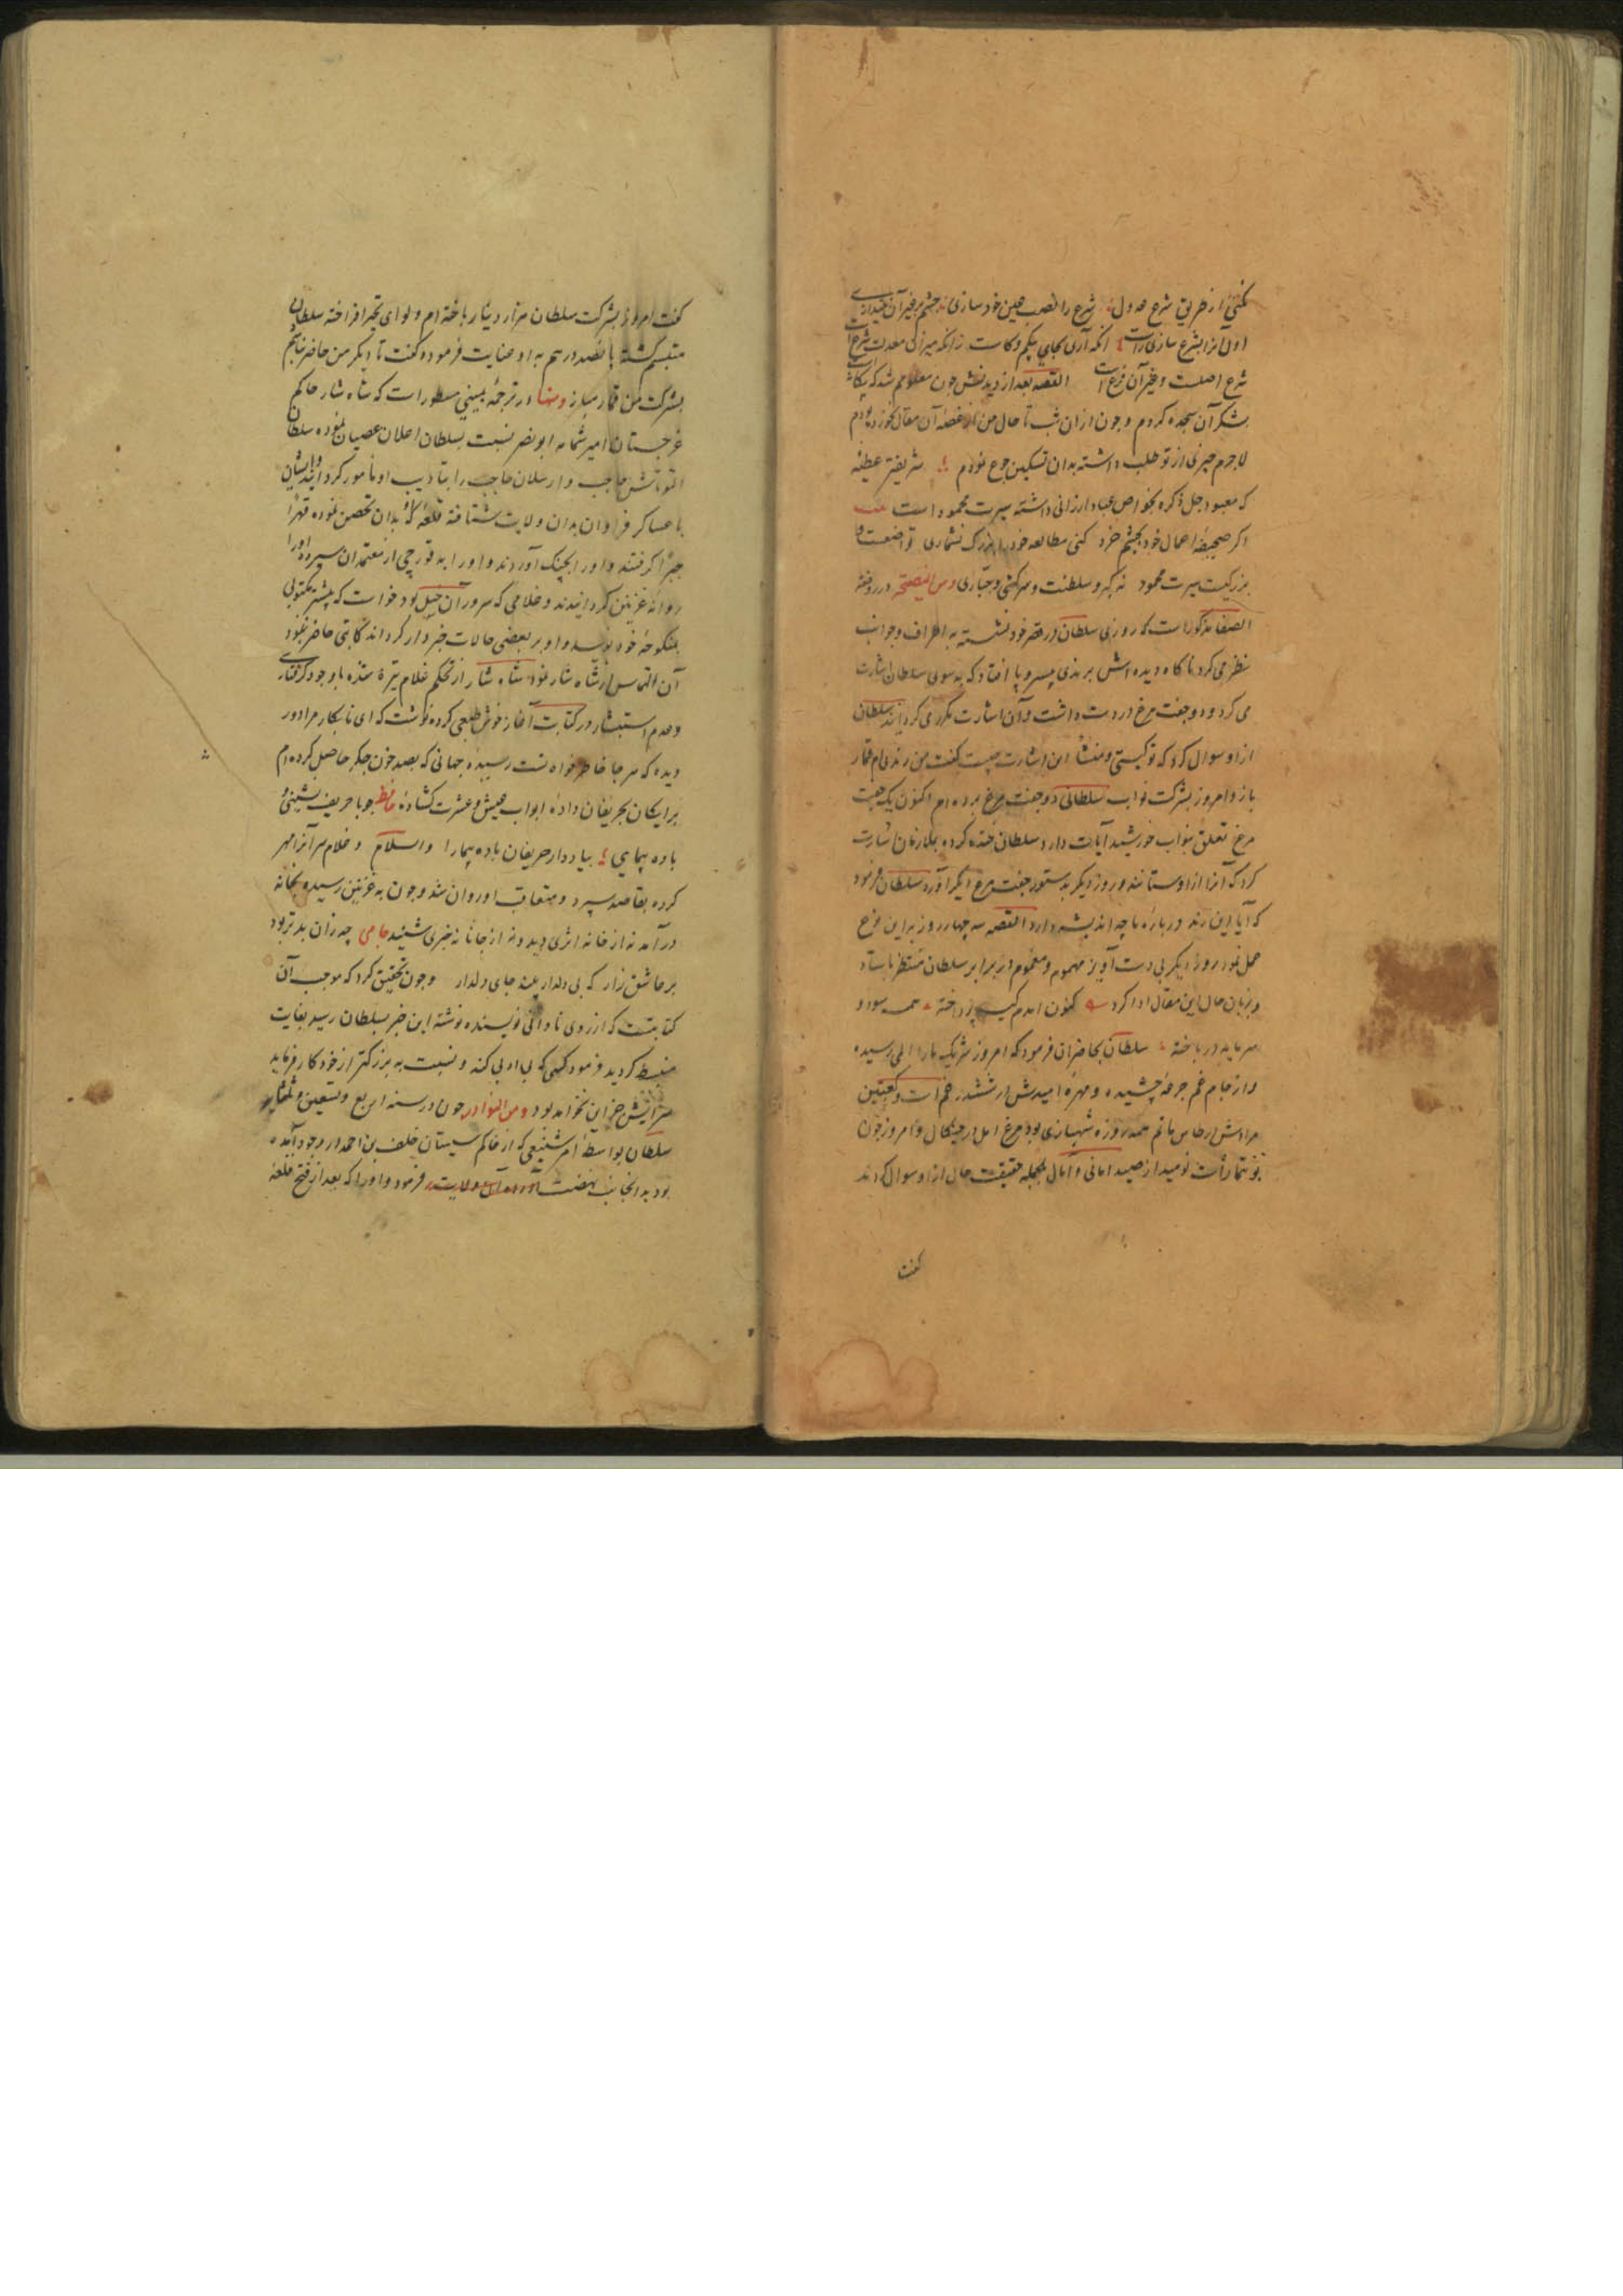 نکنی از طریق شرع عدول شرع را نصب عین خود سازی چشم بر غیر آن نیندازی
اولی مرا بشرع سازی راست آنکه آری بجای بیکم و کاست زانکه میزان معدلت شرع است
شرع اصلست و غیر آن فرع است القصه بعد از دیدنش چون معلومم شد که بیکانه است
بشکر آن سجده کردم و چون از آن شب تا حال من از غصه آن مقال نخورده بودم
لاجرم چیزی از تو طلب داشته بدان تسکین جوع نمودم شریفتر عطیه
که معبود جل ذکره بخواص عباد ارزانی داشته سیرت محمود است
اکر صحیفه اعمال خود بچشم خرد کنی مطالعه خود را بزرک نشماری تواضعست و
بزرکیست سیرت محمود نه کبر و سلطنت و سرکشی و جباری ومن النصیحة در روضة
الصفا مذکور است که روزی سلطان در قصر خود نشسته به اطراف و جوانب
نظر می کرد ناکاه دیده اش بر رندی بیسر و پا افتاد که به سوی سلطان اشارت
می کرد و دو جفت مرغ در دست داشت و آن اشارت مکرر می کردانید سلطان
از او سوال کرد که تو کیستی و منشأ این اشارت چیست کفت من رندی ام قمار
باز و امروز بشرکت نواب سلطانی دو جفت مرغ برده ام اکنون یک جفت
مرغ تعلق بنواب خورشید آیات دارد سلطان خنده کرده بملازمان اشارت
کرد که آنرا از او ستانند و روز دیکر بدستور جفت مرغ دیگر آورد سلطان فرمود
که آیا این رند در باره ما چه اندیشه دارد القصه سه چهار روز به این نوع
عمل نمود روز دیکر بی دست آویز مهموم و مغموم در برابر سلطان منتظر بایستاد
و بزبان حال این مقال ادا کرد کنون آمدم کیسه پرداخته همه سود و
سرمایه در باخته سلطان بحاضران فرمود که امروز شریک ما را المی رسیده
و از جام غم جرعه چشیده و مهره امیدش در ششدر غم است و کعبتین
مرادش در طاس ماتم همه روزه شهبازی بود مرغ امل در چنکال و امروز چون
بوتیمار است نومید از صید امانی و آمال بالجمله حقیقت حال از او سوال کردند
کفت
کفت امروز بشرکت سلطان هزار دینار باخته ام و لوای تحیر افراخته سلطان
متبسم کشته پانصد درهم به او عنایت فرموده کفت تا دیکر من حاضر نباشم
بشرکت من قمار مباز ومنها در ترجمه یمینی مسطور است که شاه شار حاکم
غرجستان امیر شما نه ابونصر نسبت بسلطان اعلان عصیان نموده سلطان
التونتاش حاجب و ارسلان حاجب را بتادیب او مامور کردانید و ایشان
با عساکر فراوان بدان ولایت شتافته قلعه که بدان تحصن نموده قهرا
جبرا کرفتند و او را بچنک آوردند و او را به قورچی از معتمدان سپرده او را
روانه غزنین کردانیدند و غلامی که سرور آن خیل بود خواست که پیشتر مکتوبی
بمنکوحه خود نویسد و او بر بعضی حالات خبردار کرداند کاتبی حاضر نبود
آن التماس از شاه شار نمود شاه شار از تحکم غلام تیره شده با وجود کرفتاری
و عدم استبشار در کتابت آغاز خوش طبعی کرده نوشت که ای نابکار مرا دور
دیده که هر جا خاطر خواه تست رسیده جهانی که بصد خون جکر حاصل کرده ام
برایکان بحریفان داده ابواب عیش و عشرت کشاده حافظ چو با حریف نشینی و
باده پیمایی بیاد دار حریفان باده پیما را والسلام و غلام سر آنرا مهر
کرده بقاصد سپرد و متعاقب او روان شد و چون به غزنین رسیده بخانه
درآمد نه از خانه اثری دید و نه از جانانه خبری شنید جامی چه زان بدتر بود
بر عاشق زار که بی دلدار بیند جای دلدار و چون تحقیق کرد که موجب آن
کتابتست که از روی نادانی نویسنده نوشته این خبر بسلطان رسید بغایت
منبسط کردید فرمود کسی که بی ادبی کند و نسبت به بزرکتر از خود کار فرماید
سزایش جز این نخواهد بود ومن النوادر چون در سنه اربع و تسعین و ثلثمایه
سلطان بواسطه امر شنیعی که از حاکم سیستان خلف بن احمد در وجود آمده
بود بدانجانب نهضت فرمود و او را که بعد از فتح قلعه